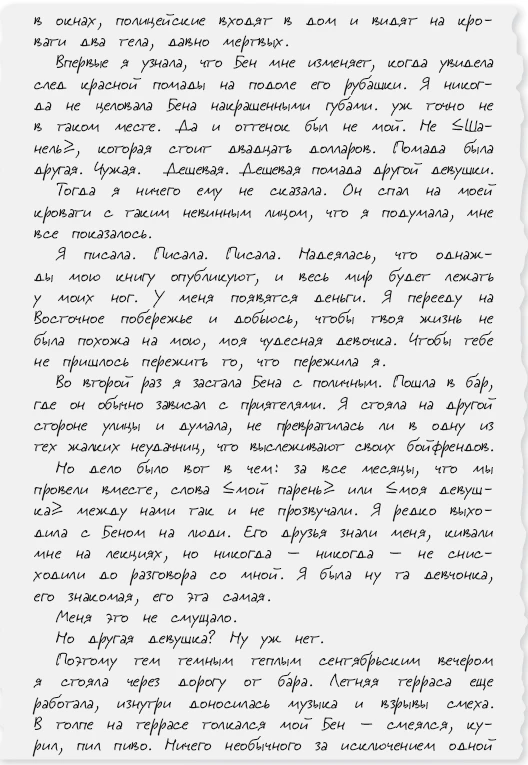 в окнах, полицейские входят в дом и видят на кро-
вати два тела, давно мертвых.
Впервые я узнала, что Бен мне изменяет, когда увидела
след красной помады на подоле его рубашки. Я никог-
да не целовала Бена накрашенными губами. уж точно не
в таком месте. Да и оттенок был не мой. Не ≤Ша-
нель≥, которая стоит двадцать долларов. Помада была
другая. Чужая. Дешевая. Дешевая помада другой девушки.
Тогда я ничего ему не сказала. Он спал на моей
кровати с таким невинным лицом, что я подумала, мне
все показалось.
Я писала. Писала. Писала. Надеялась, что однаж-
ды мою книгу опубликуют, и весь мир будет лежать
у моих ног. У меня появятся деньги. Я перееду на
Восточное побережье и добьюсь, чтобы твоя жизнь не
была похожа на мою, моя чудесная девочка. Чтобы тебе
не пришлось пережить то, что пережила я.
Во второй раз я застала Бена с поличным. Пошла в бар,
где он обычно зависал с приятелями. Я стояла на другой
стороне улицы и думала, не превратилась ли в одну из
тех жалких неудачниц, что выслеживают своих бойфрендов.
Но дело было вот в чем: за все месяцы, что мы
провели вместе, слова ≤мой парень≥ или ≤моя девуш-
ка≥ между нами так и не прозвучали. Я редко выхо-
дила с Беном на люди. Его друзья знали меня, кивали
мне на лекциях, но никогда — никогда — не снис-
ходили до разговора со мной. Я была ну та девчонка,
его знакомая, его эта самая.
Меня это не смущало.
Но другая девушка? Ну уж нет.
Поэтому тем темным теплым сентябрьским вечером
я стояла через дорогу от бара. Летняя терраса еще
работала, изнутри доносилась музыка и взрывы смеха.
В толпе на террасе толкался мой Бен — смеялся, ку-
рил, пил пиво. Ничего необычного за исключением одной